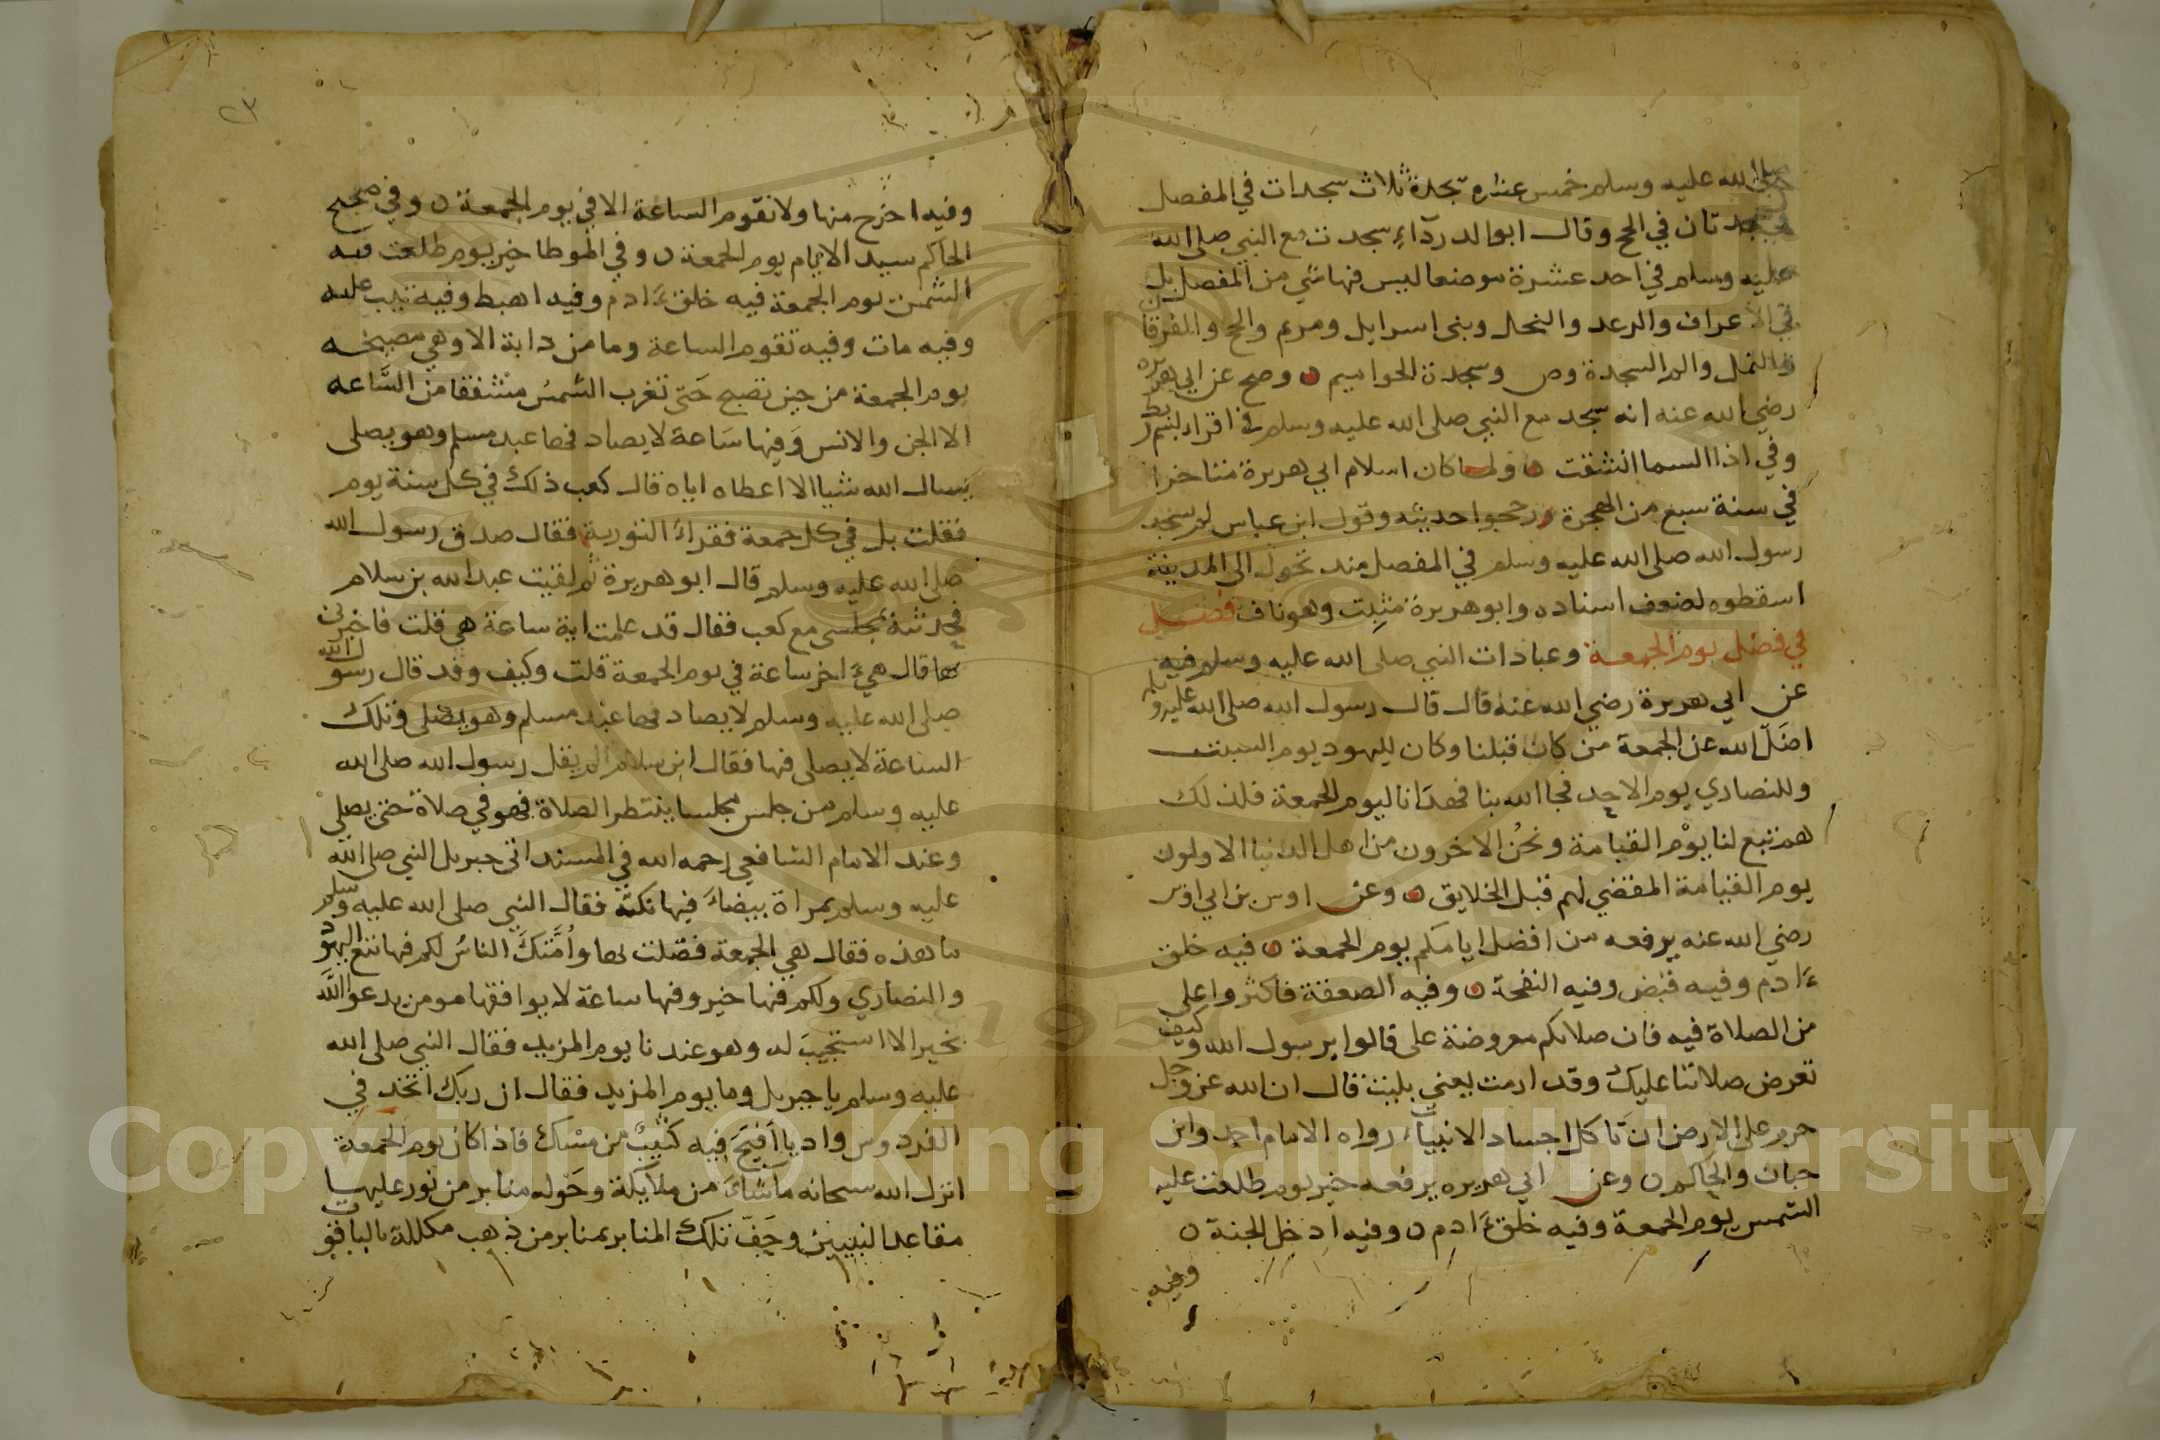 صلى الله عليه وسلم خمس عشرة سجدة ثلاث سجدات في المفصل
وسجدتان في الحج وقال ابو الدرداء سجدت مع النبي صلى الله
عليه وسلم في احد عشرة موضعا ليس فيها شي من المفصل بل
في الاعراف والرعد والنحل وبنى اسرايل ومريم والحج والفرقان
والنمل والم السجدة وص وسجدة الحواميم ه وصح عن ابي هريره
رضي الله عنه انه سجد مع النبي صلى الله عليه وسلم في اقرا بسم ربك
وفي اذا السما انشقت ه ولما كان اسلام ابي هريرة متاخرا
في سنة سبع من الهجرة رجحوا حديثه وقول ابن عباس لم يسجد
رسول الله صلى الله عليه وسلم في المفصل منذ تحول الى المدينة
اسقطوه لضعف اسناده وابو هريرة مثبت وهو ناف فصل
في فضل يوم الجمعة وعبادات النبي صلى الله عليه وسلم فيه
عن ابي هريرة رضي الله عنه قال قال رسول الله صلى الله عليه وسلم
اضل الله عن الجمعة من كان قبلنا وكان لليهود يوم السبت
وللنصاري يوم الاحد فجا الله بنا فهدانا ليوم الجمعة فلذلك
هم تبع لنا يوم القيامة ونحن الاخرون من اهل الدنيا الاولون
يوم القيامة المقضي لهم قبل الخلايق ه وعن اوس بن ابي اوس
رضي الله عنه يرفعه من افضل ايامكم يوم الجمعة ه فيه خلق
ءادم وفيه قبض وفيه النفخة ه وفيه الصعقة فاكثروا علي
من الصلاة فيه فان صلاتكم معروضة على قالوا يرسول الله وكيف
تعرض صلاتنا عليك وقد ارمت يعني بليت قال ان الله عز وجل
حرم على الارض ان تاكل اجساد الانبياء رواه الامام احمد وابن
حبان والحاكم ه وعن ابي هريره يرفعه خير يوم طلعت عليه
الشمس يوم الجمعة وفيه خلق ءادم ه وفيه ادخل الجنة ه
وفيه
٢٣
وفيه اخرج منها ولا تقوم الساعة الا في يوم الجمعة ه وفي صحيح
الحاكم سيد الايام يوم الجمعة ه وفي الموطا خير يوم طلعت فيه
الشمس يوم الجمعة فيه خلق ءادم وفيه اهبط وفيه تيب عليه
وفيه مات وفيه تقوم الساعة وما من دابة الا وهي مصيخه
يوم الجمعة من حين تصبح حتى تغرب الشمس مشفقا من الساعه
الا الجن والانس وفيها ساعة لا يصادفها عبد مسلم وهو يصلى
يسال الله شيا الا اعطاه اياه قال كعب ذلك في كل سنة يوم
فقلت بل في كل جمعة فقراء التورية فقال صدق رسول الله
صلى الله عليه وسلم قال ابو هريرة ثم لقيت عبد الله بن سلام
فحدثته بمجلسى مع كعب فقال قد علمت اية ساعة هي قلت فاخبرني
بها قال هي اخر ساعة في يوم الجمعة قلت وكيف وقد قال رسول الله
صلى الله عليه وسلم لا يصادفها عبد مسلم وهو يصلى وتلك
الساعة لا يصلى فيها فقال ابن سلام الم يقل رسول الله صلى الله
عليه وسلم من جلس مجلسا ينتظر الصلاة فهو في صلاة حتى يصلي
وعند الامام الشافعي رحمه الله في المسند اتى جبريل النبي صلى الله
عليه وسلم بمراة بيضاء فيها نكتة فقال النبي صلى الله عليه وسلم
ما هذه فقال هي الجمعة فضلت بها وامتك الناس لكم فيها تبع اليهود
والنصاري ولكم فيها خير وفيها ساعة لا يوافقها مومن يدعوا الله
بخير الا استجيب له وهو عندنا يوم المزيد فقال النبي صلى الله
عليه وسلم يا جبريل وما يوم المزيد فقال ان ربك اتخذ في
الفردوس واديا افيح فيه كثيب من مسك فاذا كان يوم الجمعة
انزل الله سبحانه ما شاء من ملايكة وحوله منابر من نور عليها
مقاعد النبيين وحف تلك المنابر بمنابر من ذهب مكللة بالياقوت
Copyright © King Saud University
1957